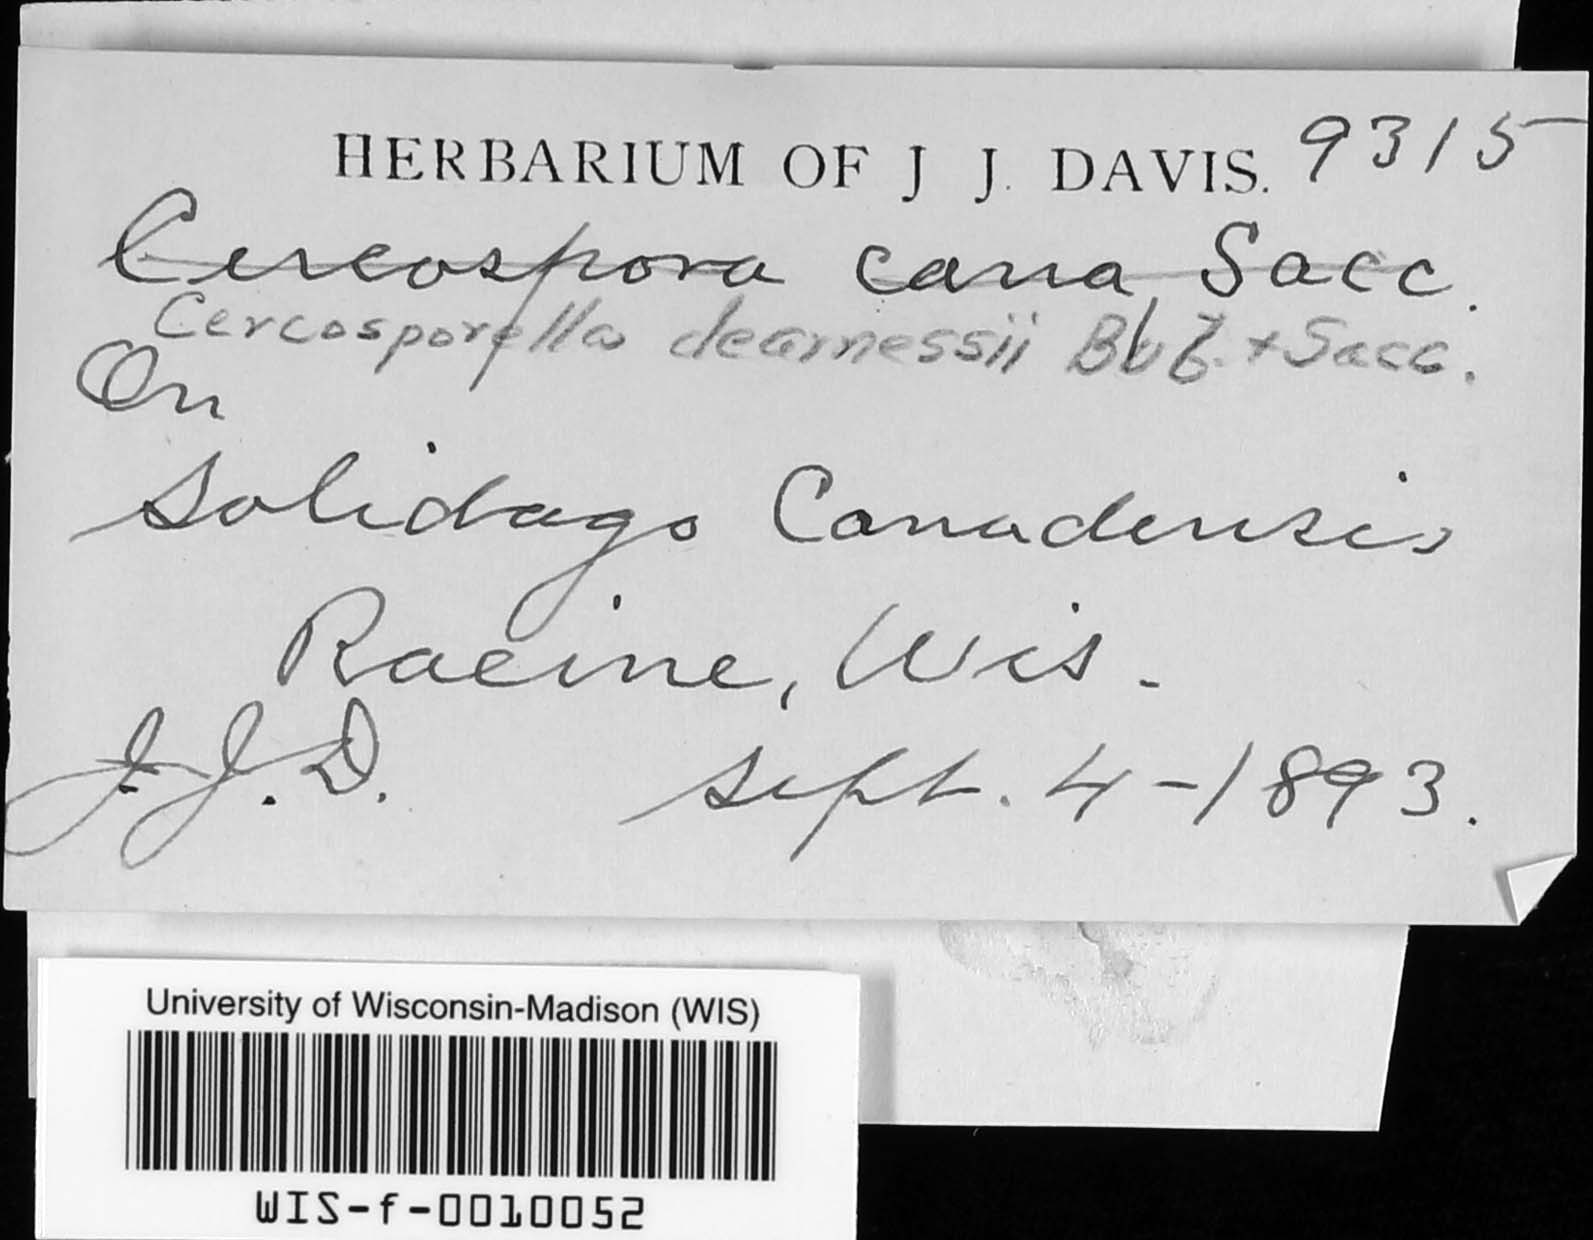 HERBARIUM OF J J. DAVIS. 9315
Cercospora cana, Sacc.
Cercosporella dearnessii Bub. + Sacc.
On
Solidago Canadensis
Racine, Wis.
J. J. D. Sept. 4-1893.
University of Wisconsin-Madison (WIS)
WIS-f-0010052